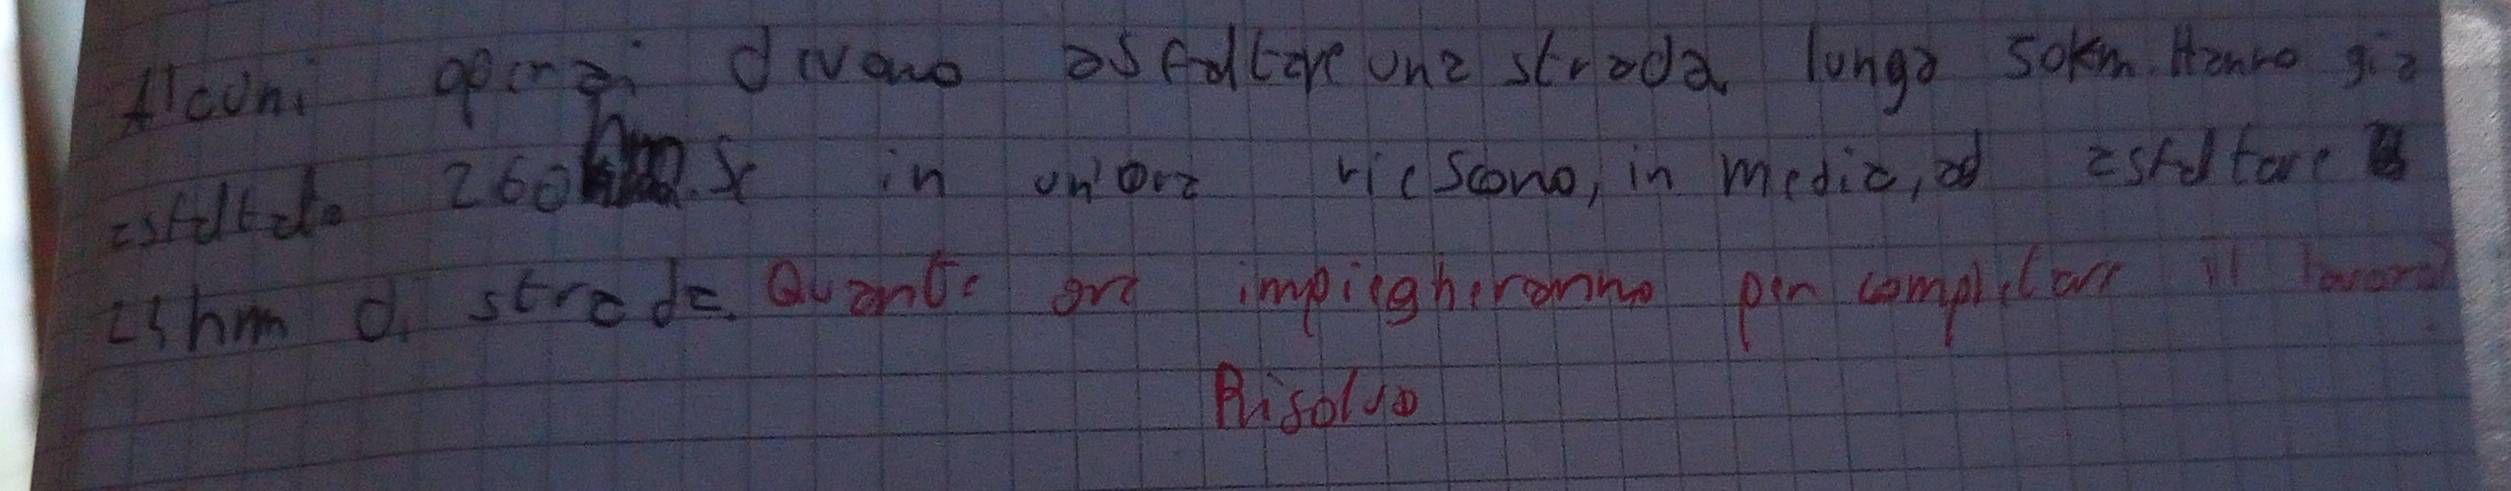 Alcuni operai devono asfaltare una strada lunga 50km. Hanno già
asfaltato 260hm. Se in un'ora riescono, in media, ad asfaltare
25hm di strada. Quante ore impiegheranno per completare il lavoro
Risolvo